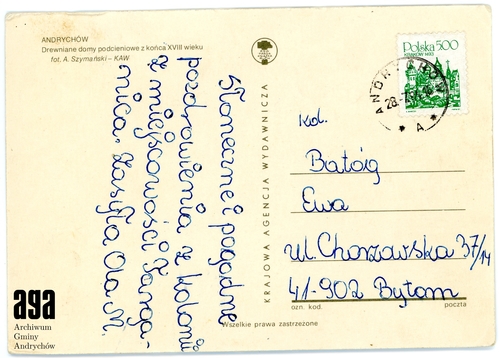 ANDRYCHÓW
Drewniane domy podcieniowe z końca XVIII wieku
fot. A. Szymański – KAW
Słoneczne i pogodne
pozdrowienia z kolonii
z miejscowości Targa-
nica. Zasyła Ola M.
KRAJOWA AGENCJA WYDAWNICZA
Polska 5.00
KRAKÓW 1493
ANDRYCHÓW
* A *
Kol.
Batóg
Ewa
ul. Chorzowska 37/14
41-902 Bytom
ozn. kod. poczta
Wszelkie prawa zastrzeżone
aga
Archiwum
Gminy
Andrychów